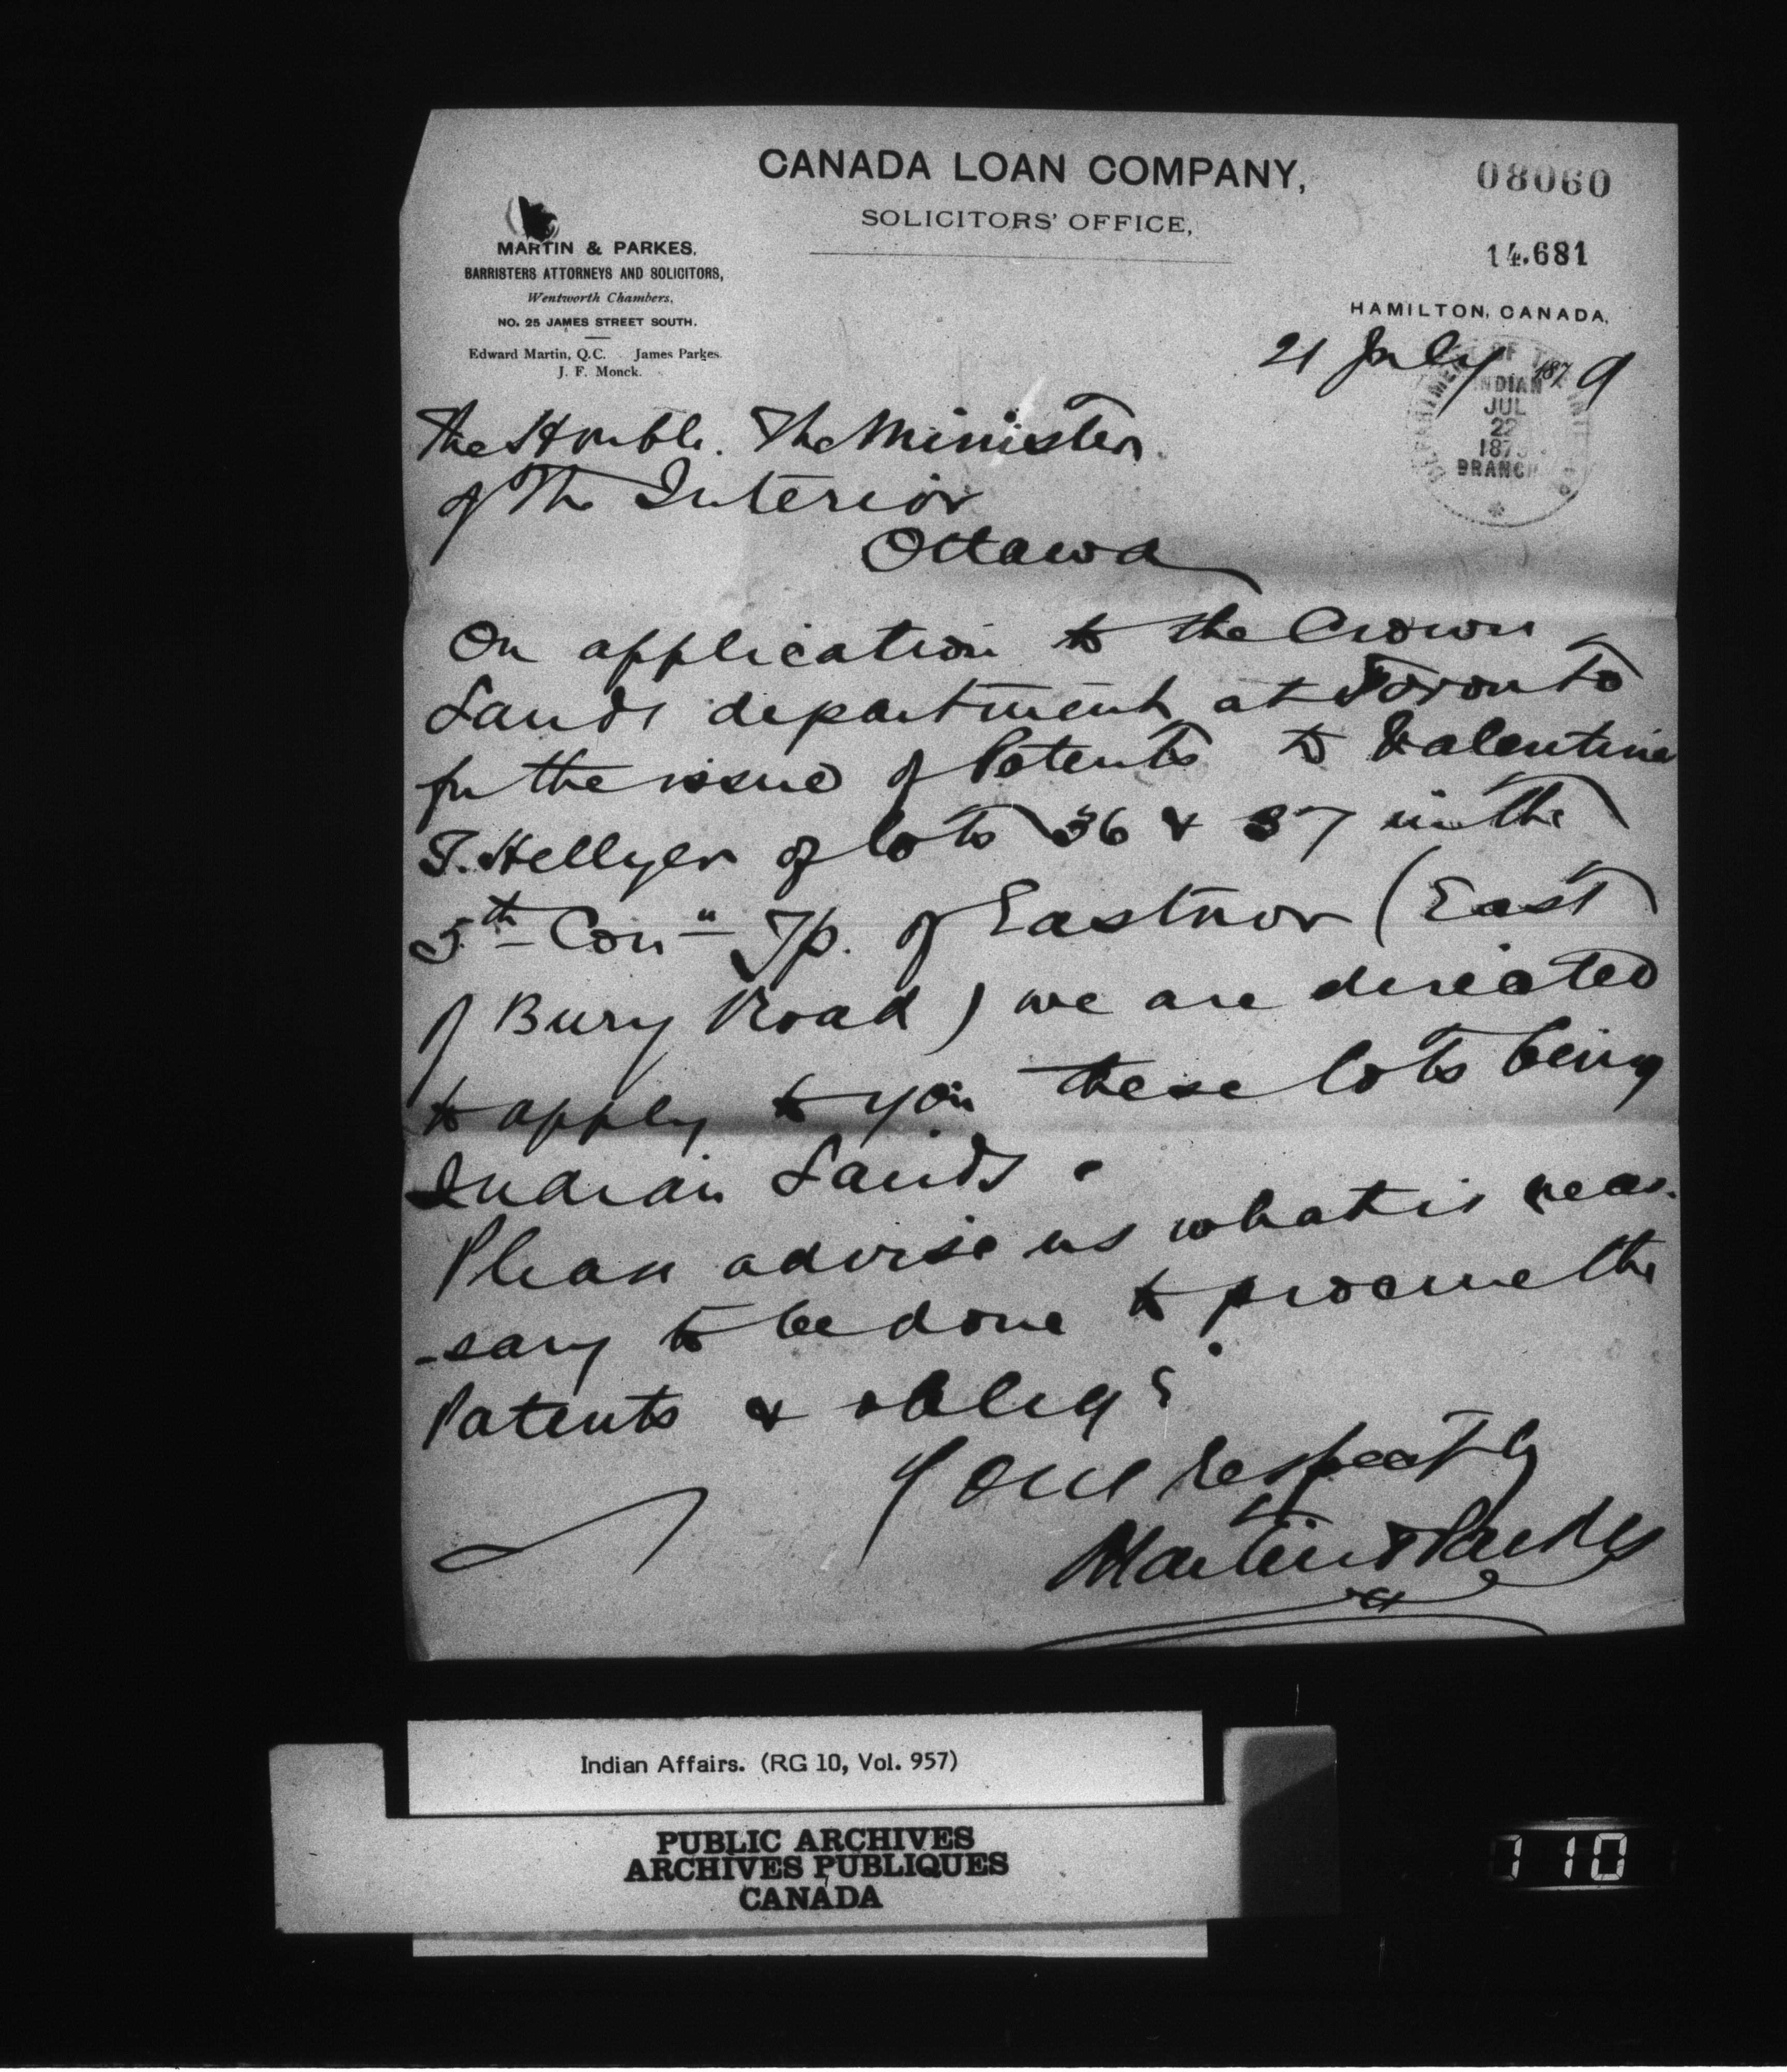 CANADA LOAN COMPANY,
SOLICITORS' OFFICE,
08060
14.681
MARTIN & PARKES,
BARRISTERS ATTORNEYS AND SOLICITORS,
Wentworth Chambers,
NO. 25 JAMES STREET SOUTH.
Edward Martin, Q.C. James Parkes.
J. F. Monck.
HAMILTON, CANADA,
21 July 1879
DEPARTMENT OF THE INTERIOR
INDIAN
JUL
22
1879
BRANCH
The Honble. The Minister
of The Interior
Ottawa
On application to the Crown
Lands department at Toronto
for the issue of Patents to Valentine
T. Hellyer of lots 36 & 37 in the
5th Con" Tp. of Eastnor (East
of Bury Road) we are directed
to apply to you these lots being
Indian Lands.
Please advise us what is neces-
-sary to be done to procure the
Patents & oblige
Yours respectly
Martin & Parkes
Indian Affairs. (RG 10, Vol. 957)
PUBLIC ARCHIVES
ARCHIVES PUBLIQUES
CANADA
110